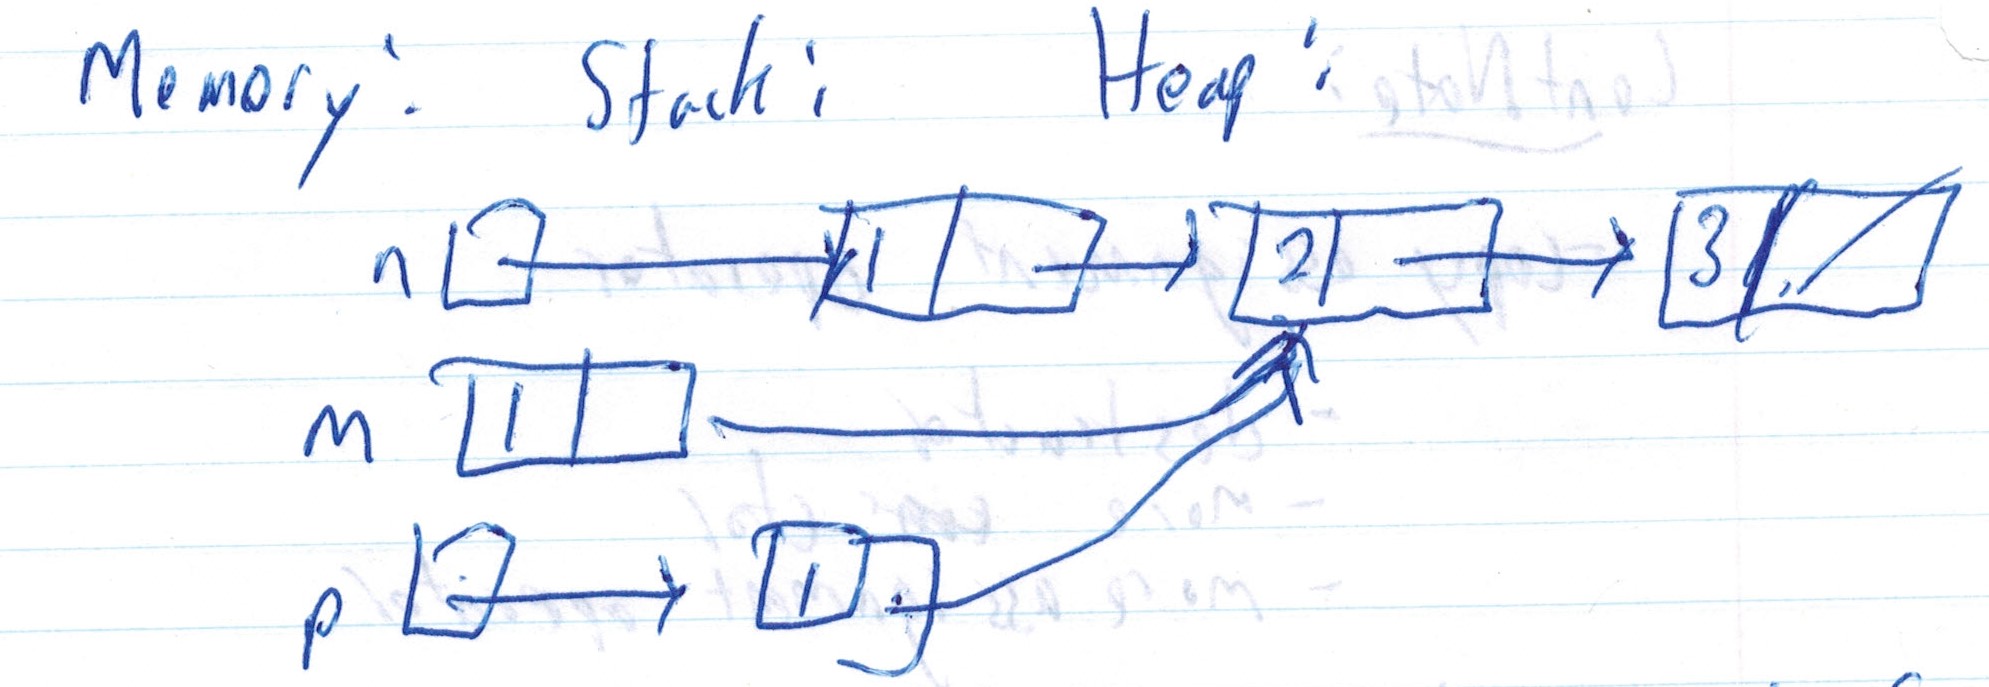 Memory: Stack: Heap:
n 1 2 3
m 1
p 1